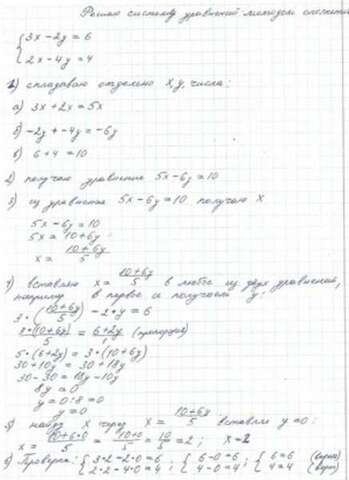 Решаю систему уравнений методом сложения
{3x - 2y = 6
{2x - 4y = 4
1) складываю отдельно x, y, числа:
а) 3x + 2x = 5x
б) -2y + -4y = -6y
в) 6 + 4 = 10
2) получаю уравнение 5x - 6y = 10
3) из уравнения 5x - 6y = 10 получаю x
5x - 6y = 10
5x = 10 + 6y
x = (10 + 6y)/5
4) вставляю x = (10 + 6y)/5 в любое из двух уравнений,
например в первое и получаем y:
3 * (10 + 6y)/5 - 2 * y = 6
3 * (10 + 6y)/5 = (6 + 2y)/1 (пропорция)
5 * (6 + 2y) = 3 * (10 + 6y)
30 + 10y = 30 + 18y
30 - 30 = 18y - 10y
8y = 0
y = 0 : 8 = 0
y = 0
5) найду x через x = (10 + 6y)/5 вставляя y = 0:
x = (10 + 6 * 0)/5 = (10 + 0)/5 = 10/5 = 2; x = 2
6) Проверка: {3 * 2 - 2 * 0 = 6 ; {6 - 0 = 6 ; {6 = 6 (верно)
{2 * 2 - 4 * 0 = 4 ; {4 - 0 = 4 ; {4 = 4 (верно)